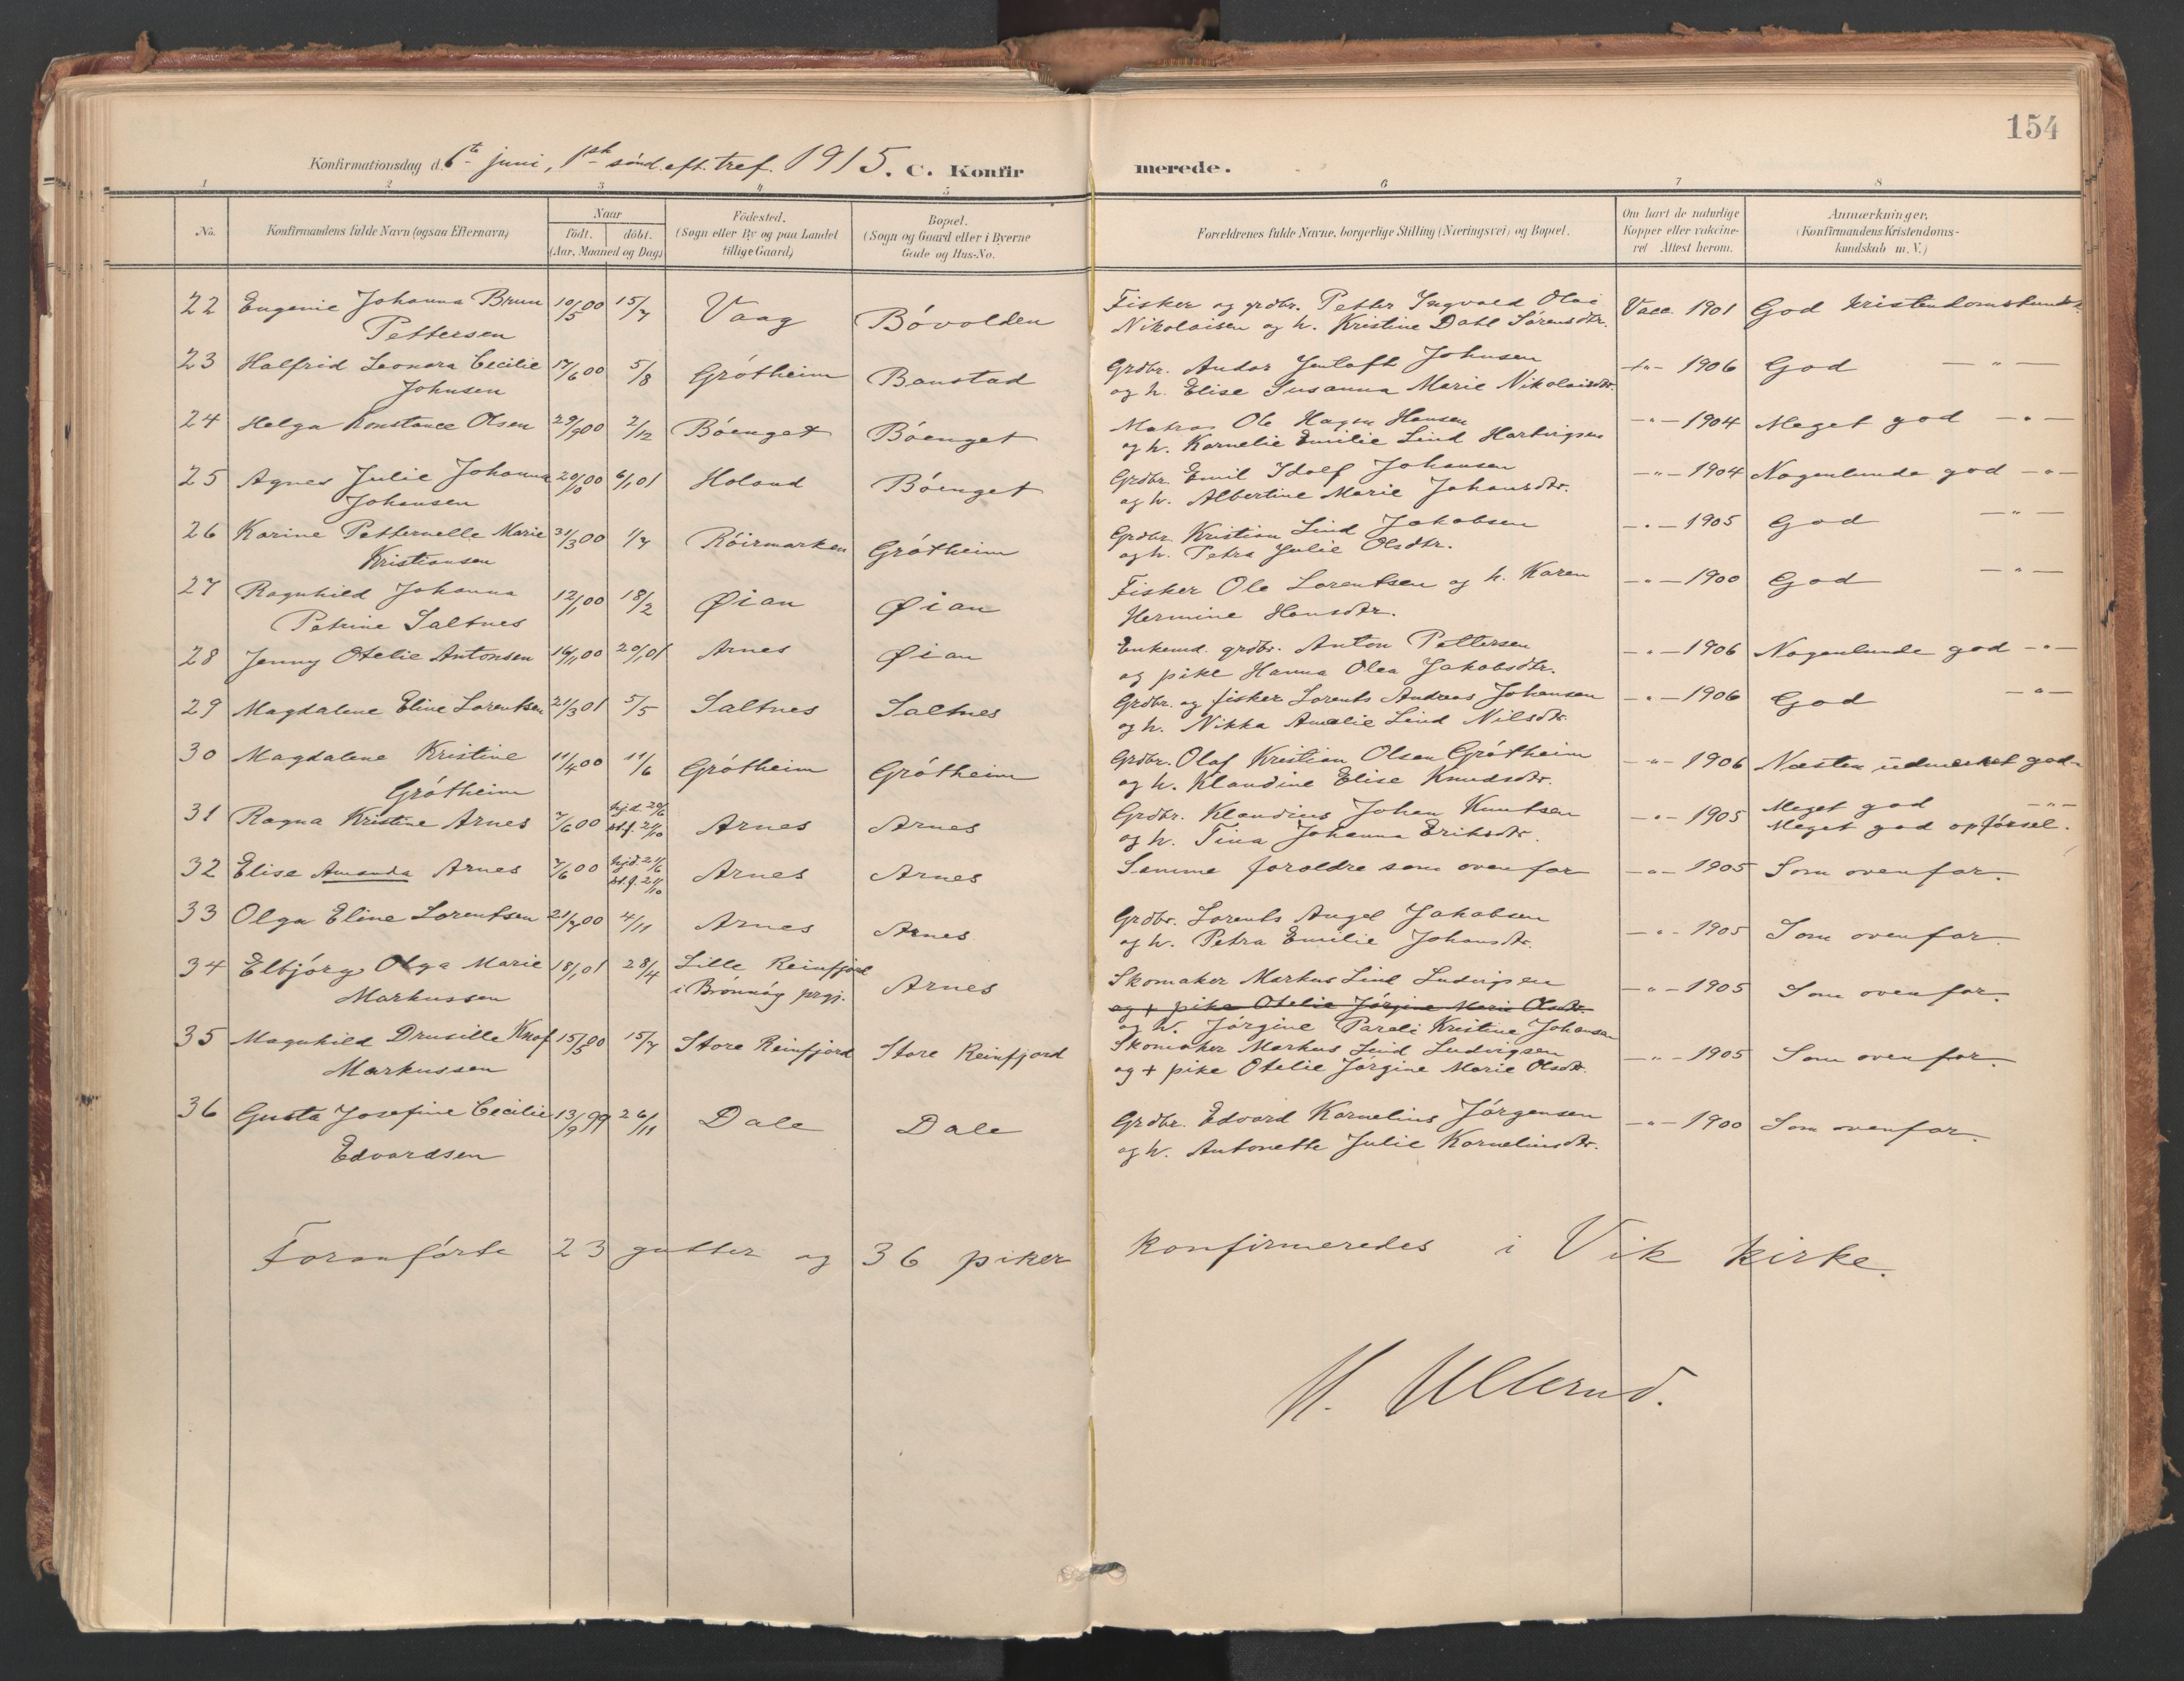 154
Konfirmationsdag d. 6te juni, 1ste sönd. eft. tref. 1915. C. Konfirmerede.
1 2 3 4 5 6 7 8
No.
Konfirmandens fulde Navn (ogsaa Efternavn)
Naar
födt. döbt.
(Aar, Maaned og Dag)
Födested.
(Sogn eller By og paa Landet
tillige Gaard)
Bopæl.
(Sogn og Gaard eller i Byerne
Gade og Hus-No.
Forældrenes fulde Navne, borgerlige Stilling (Næringsvei) og Bopæl.
Om havt de naturlige
Kopper eller vakcine-
ret Attest herom.
Anmærkninger.
(Konfirmandens Kristendoms-
kundskab m. V.)
22 Eugenie Johanna Brun 10/5 00 15/7 Vaag Bóvolden Fisker og grdbr. Petter Ingvald Olai Vacc. 1901 God kristendomskundsk.
Pettersen Nikolaisen og h. Kristine Dahl Sørensdtr.
23 Halfrid Leonora Cecilie 17/6 00 5/8 Grótheim Banstad Grdbr. Andor Jentoft Johnsen -"- 1906 God -"-
Johnsen og h. Elise Susanna Marie Nikolaisdtr.
24 Helga Konstance Olsen 29/9 00 2/12 Bóenget Bóenget Matros Ole Hagen Hansen -"- 1904 Meget god -"-
og h. Kornelie Emilie Lind Hartvigsen
25 Agnes Julie Johanna 20/10 00 6/1 01 Holand Bóenget Grdbr. Emil Idolf Johansen -"- 1904 Nogenlunde god -"-
Johansen og h. Albertine Marie Johansdtr.
26 Karine Petternelle Marie 31/3 00 1/7 Róirmarken Grótheim Grdbr. Kristian Lind Jakobsen -"- 1905 God -"-
Kristiansen og h. Petra Julie Olsdtr.
27 Ragnhild Johanna 12/1 00 18/2 Øian Øian Fisker Ole Lorentsen og h. Karen -"- 1900 God -"-
Petrine Saltnes Hermine Hansdtr.
28 Jenny Otelie Antonsen 16/11 00 20/1 01 Arnes Øian Enkemd. grdbr. Anton Pettersen -"- 1906 Nogenlunde god -"-
og pike Hanna Olea Jakobsdtr.
29 Magdalene Eline Lorentsen 21/3 01 5/5 Saltnes Saltnes Grdbr. og fisker Lorents Andreas Johansen -"- 1906 God -"-
og h. Nikka Amalie Lind Nilsdtr.
30 Magdalene Kristine 11/4 00 11/6 Grótheim Grótheim Grdbr. Olaf Kristian Olsen Grótheim -"- 1906 Næsten udmerket god
Grótheim og h. Klaudine Elise Knudsdtr.
31 Ragna Kristine Arnes 7/6 00 hj.d. 29/6 Arnes Arnes Grdbr. Klaudius Johan Knutsen -"- 1905 Meget god -"-
st.f. 21/10 og h. Tina Johanna Eriksdtr. Meget god opførsel.
32 Elise Amanda Arnes 7/6 00 hj.d. 21/6 Arnes Arnes Samme foroldre som ovenfor -"- 1905 Som ovenfor.
st.f. 21/10
33 Olga Eline Lorentsen 21/7 00 4/11 Arnes Arnes Grdbr. Lorents Angel Jakobsen -"- 1905 Som ovenfor.
og h. Petra Emilie Johansdtr.
34 Elbjórg Olga Marie 18/1 01 28/4 Lille Reinfjord Arnes Skomaker Markus Lind Ludvigsen -"- 1905 Som ovenfor.
Markussen i Brónnóy prgj. og + pike Otelie Jórgine Marie Olsdtr.
og h. Jórgine Pareli Kristine Johansen
35 Magnhild Drusille Knof 15/5 00 15/7 Store Reinfjord Store Reinfjord Skomaker Markus Lind Ludvigsen -"- 1905 Som ovenfor.
Markussen og + pike Otelie Jórgine Marie Olsdtr.
36 Gusta Josefine Cecilie 13/9 99 26/11 Dale Dale Grdbr. Edvard Kornelius Jórgensen -"- 1900 Som ovenfor.
Edvardsen og h. Antonette Julie Korneliusdtr.
Foranfórte 23 gutter og 36 piker konfirmeredes i Vik kirke.
M. Ullerud.